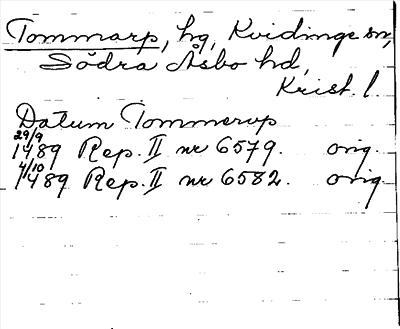 Tommarp, hg, Kvidinge sn,
Södra Åsbo hd,
Krist. l.
Datum Tommerup
29/9
1489 Rep. II nr 6579. orig.
4/10
1489 Rep. II nr 6582. orig